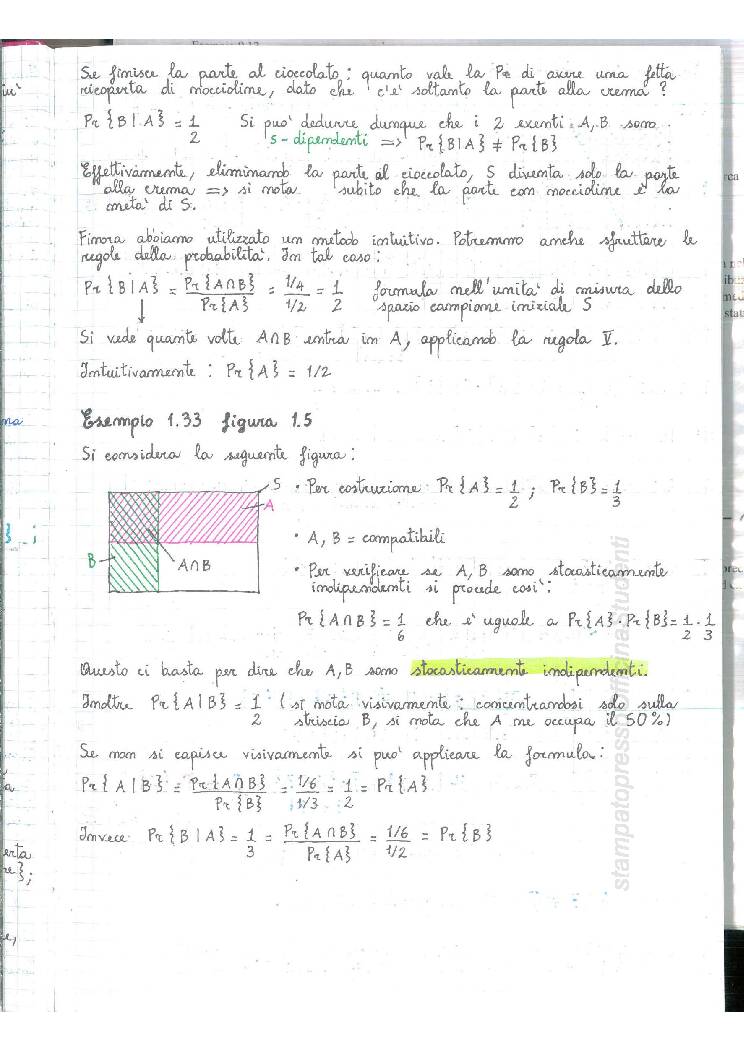 Se finisce la parte al cioccolato: quanto vale la Pr di avere una fetta
ricoperta di noccioline, dato che c'e' soltanto la parte alla crema?
Pr {B | A} = 1/2 Si puo' dedurre dunque che i 2 eventi A, B sono
s-dipendenti => Pr{B|A} ≠ Pr{B}
Effettivamente, eliminando la parte al cioccolato, S diventa solo la parte
alla crema => si nota subito che la parte con noccioline e' la
meta' di S.
Finora abbiamo utilizzato un metodo intuitivo. Potremmo anche sfruttare le
regole della probabilita'. In tal caso:
Pr {B | A} = Pr{A∩B} / Pr{A} = 1/4 / 1/2 = 1/2 formula nell'unita' di misura dello
spazio campione iniziale S
Si vede quante volte A∩B entra in A, applicando la regola V.
Intuitivamente: Pr{A} = 1/2
Esempio 1.33 figura 1.5
Si considera la seguente figura:
S
A
B
A∩B
• Per costruzione Pr{A} = 1/2 ; Pr{B} = 1/3
• A, B = compatibili
• Per verificare se A, B sono stocasticamente
indipendenti si procede cosi':
Pr{A∩B} = 1/6 che e' uguale a Pr{A}·Pr{B} = 1/2 · 1/3
Questo ci basta per dire che A, B sono stocasticamente indipendenti.
Inoltre Pr{A|B} = 1/2 (si nota visivamente: concentrandosi solo sulla
striscia B, si nota che A ne occupa il 50%)
Se non si capisce visivamente si puo' applicare la formula:
Pr{A|B} = Pr{A∩B} / Pr{B} = 1/6 / 1/3 = 1/2 = Pr{A}
Invece Pr{B|A} = 1/3 = Pr{A∩B} / Pr{A} = 1/6 / 1/2 = Pr{B}